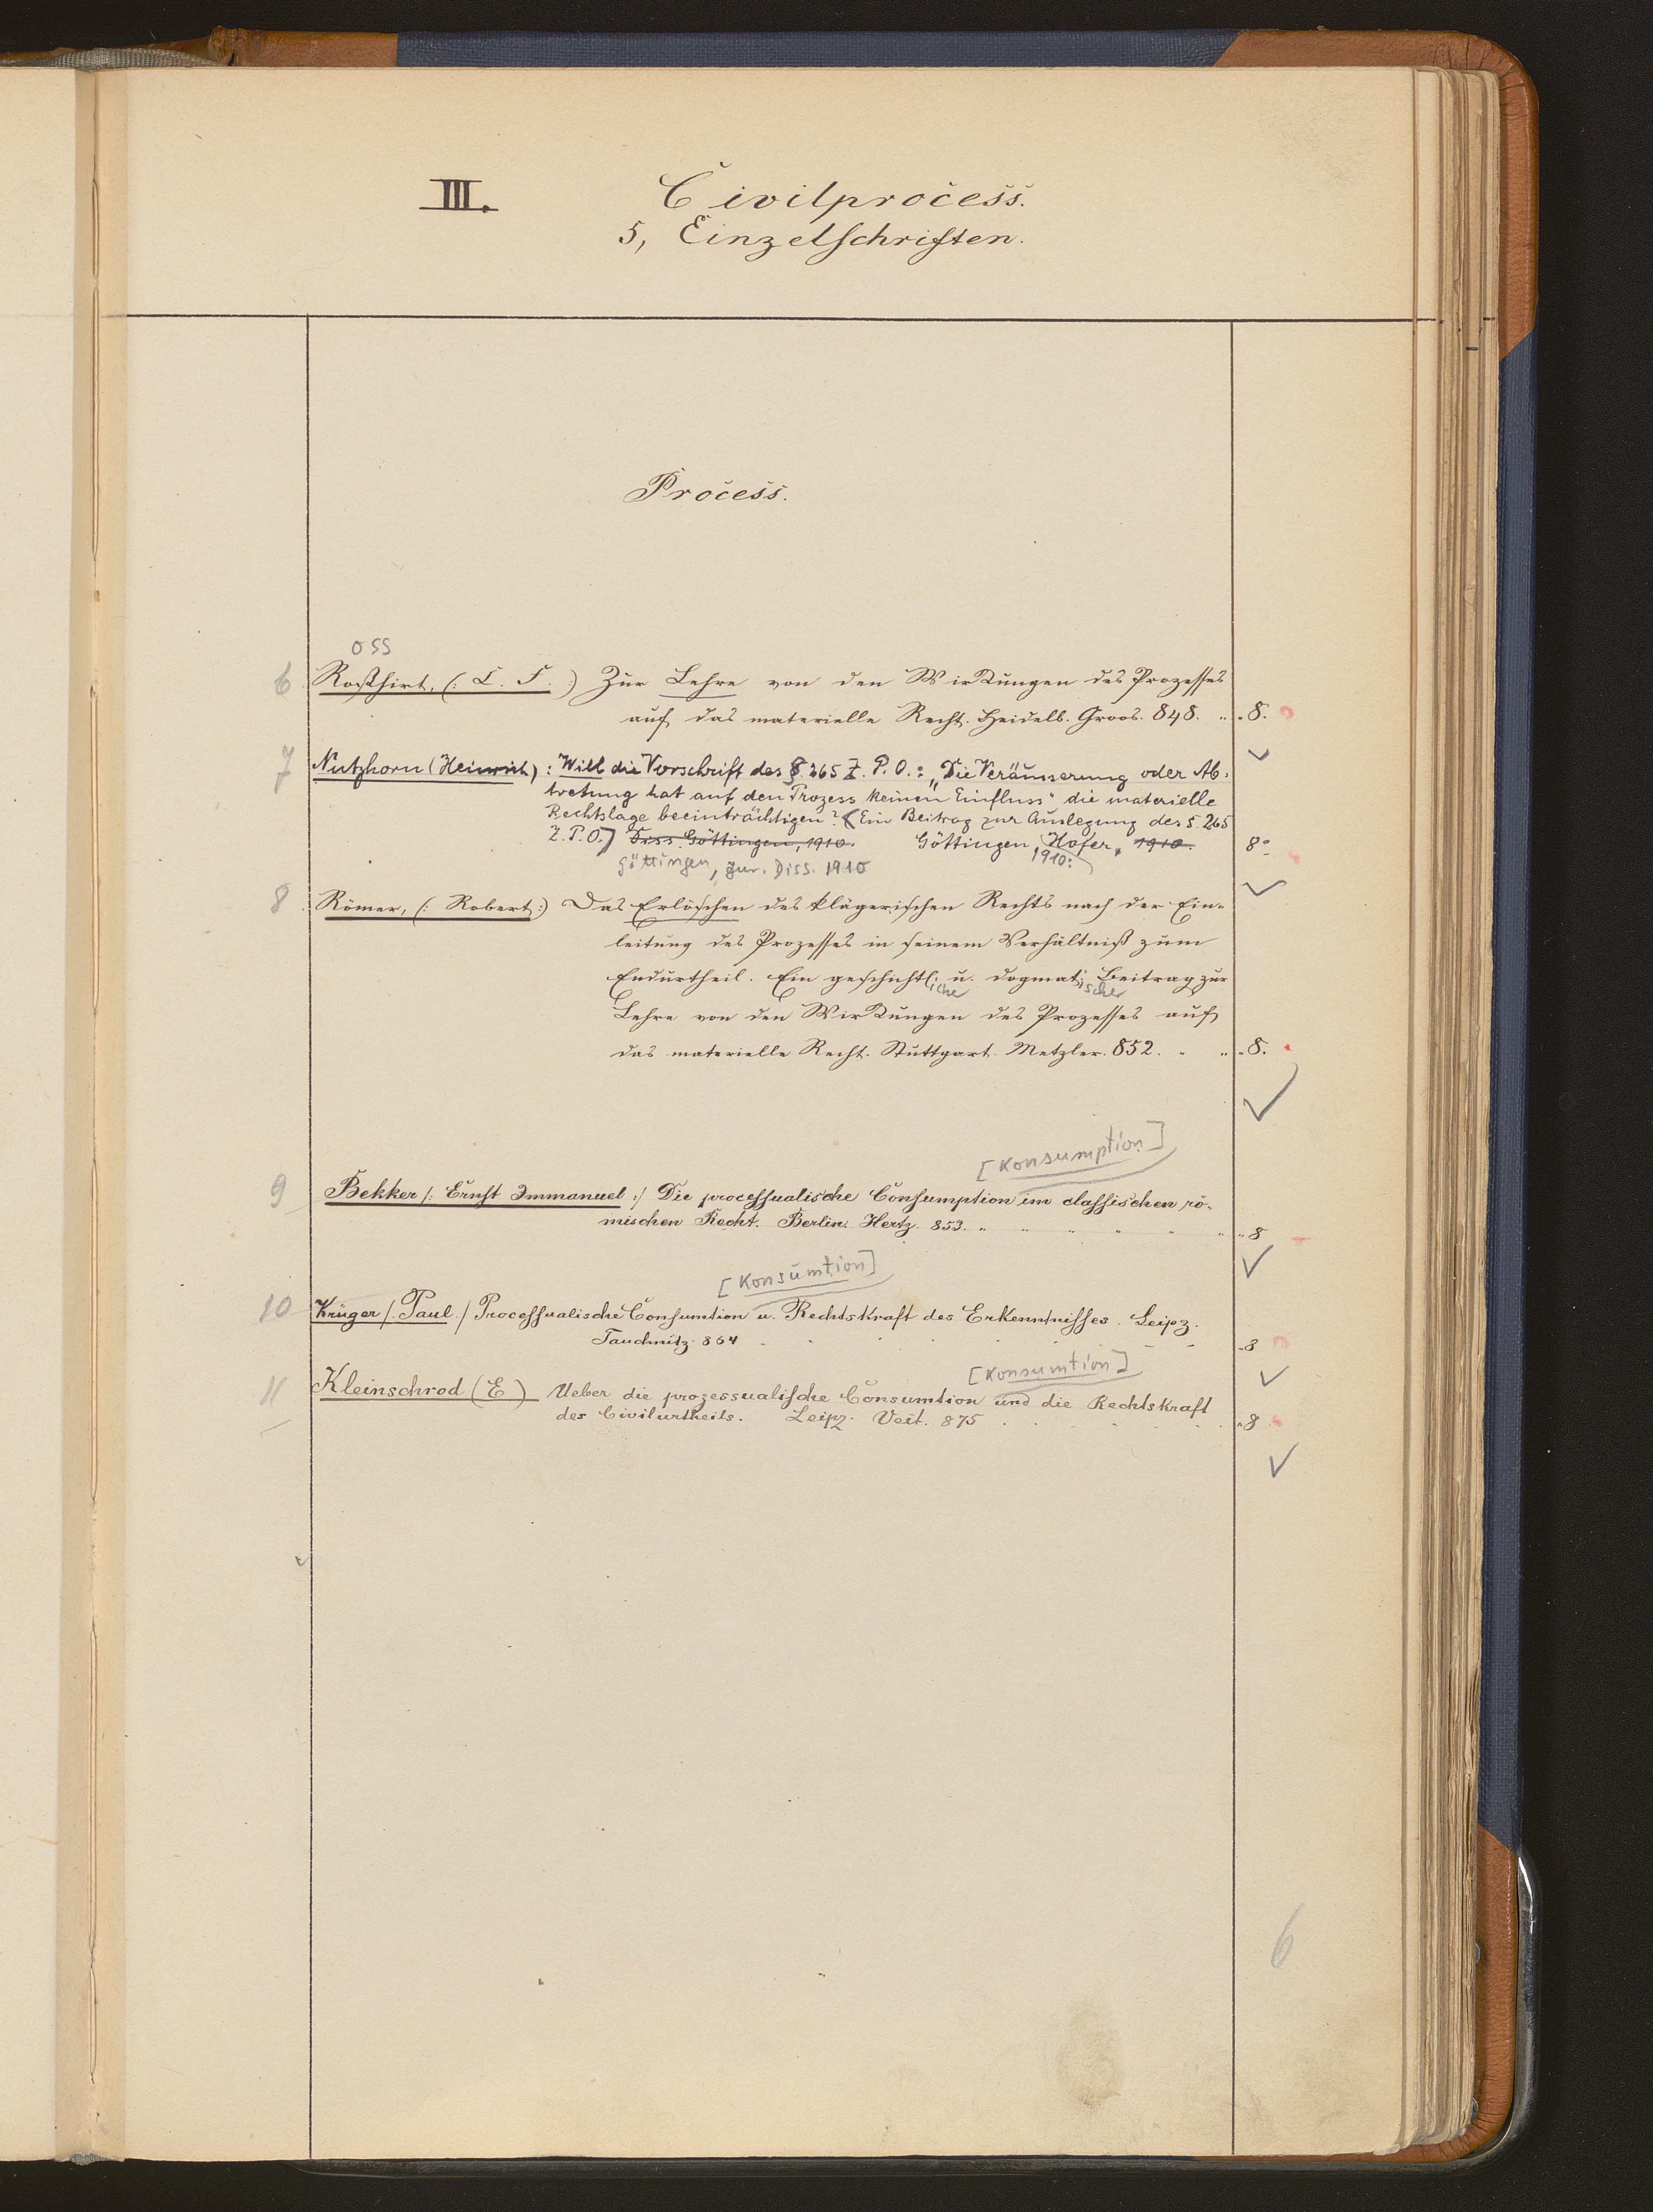 III. Civilprocess.
5, Einzelschriften.
Process.
oss
6 Roßhirt, (: C. F. :) Zur Lehre von den Wirkungen des Prozesses
auf das materielle Recht. Heidelb. Groos. 848. „ „ 8.
7 Nutzhorn (Heinrich): Will die Vorschrift des §. 265 Z. P. O.: „Die Veräusserung oder Ab-
tretung hat auf den Prozess keinen Einfluss“ die materielle
Rechtslage beeinträchtigen? (Ein Beitrag zur Auslegung des §. 265
Z. P. O.) Diss. Göttingen, 1910. Göttingen, Hofer, 1910. 8°
Göttingen, jur. Diss. 1910 1910.
8 Römer, (: Robert :) Das Erlöschen des klägerischen Rechts nach der Ein-
leitung des Prozesses in seinem Verhältniß zum
Endurtheil. Ein geschichtl. u. dogmat. Beitrag zur
iche ischer
Lehre von den Wirkungen des Prozesses auf
das materielle Recht. Stuttgart. Metzler. 852. „ „ „ 8.
[Konsumption]
9 Bekker /: Ernst Immanuel :/ Die processualische Consumption im classischen rö-
mischen Recht. Berlin. Hertz. 853. „ „ „ „ „ „ „ 8
[Konsumtion]
10 Krüger /. Paul ./ Processualische Consumtion u. Rechtskraft des Erkenntnisses. Leipz.
Tauchnitz. 864 . . . . . 8
[Konsumtion]
11 Kleinschrod (E) Ueber die prozessualische Consumtion und die Rechtskraft
des Civilurtheils. Leipz. Veit. 875 . . . . . . „ 8
6